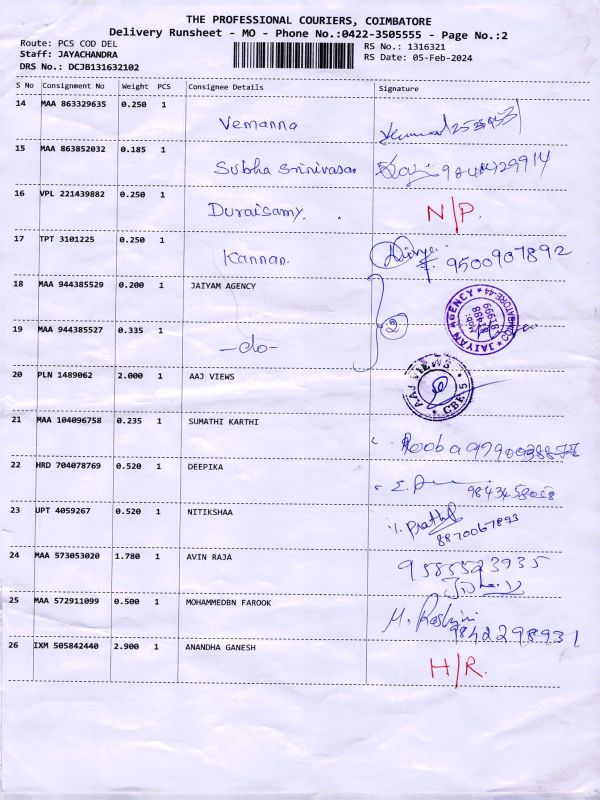 THE PROFESSIONAL COURIERS, COIMBATORE
Delivery Runsheet - MO - Phone No.:0422-3505555 - Page No.:2
Route: PCS COD DEL RS No.: 1316321
Staff: JAYACHANDRA RS Date: 05-Feb-2024
DRS No.: DCJB131632102
S No Consignment No Weight PCS Consignee Details Signature
14 MAA 863329635 0.250 1
Vemanna
15 MAA 863852032 0.185 1
Subha Srinivasan
16 VPL 221439882 0.250 1
Duraisamy. N/P.
17 TPT 3101225 0.250 1
Kannan. Divya 9500907892
18 MAA 944385529 0.200 1 JAIYAM AGENCY
2
JAIYAN AGENCY COIMBATORE-44
19 MAA 944385527 0.335 1
-do-
20 PLN 1489062 2.000 1 AAJ VIEWS
AAJ VIEWS CBE 5
21 MAA 104096758 0.235 1 SUMATHI KARTHI
Rooba
22 HRD 704078769 0.520 1 DEEPIKA
23 UPT 4059267 0.520 1 NITIKSHAA
8870067893
24 MAA 573053020 1.780 1 AVIN RAJA
9585523935
25 MAA 572911099 0.500 1 MOHAMMEDBN FAROOK
9842298931
26 IXM 505842440 2.900 1 ANANDHA GANESH
H/R.